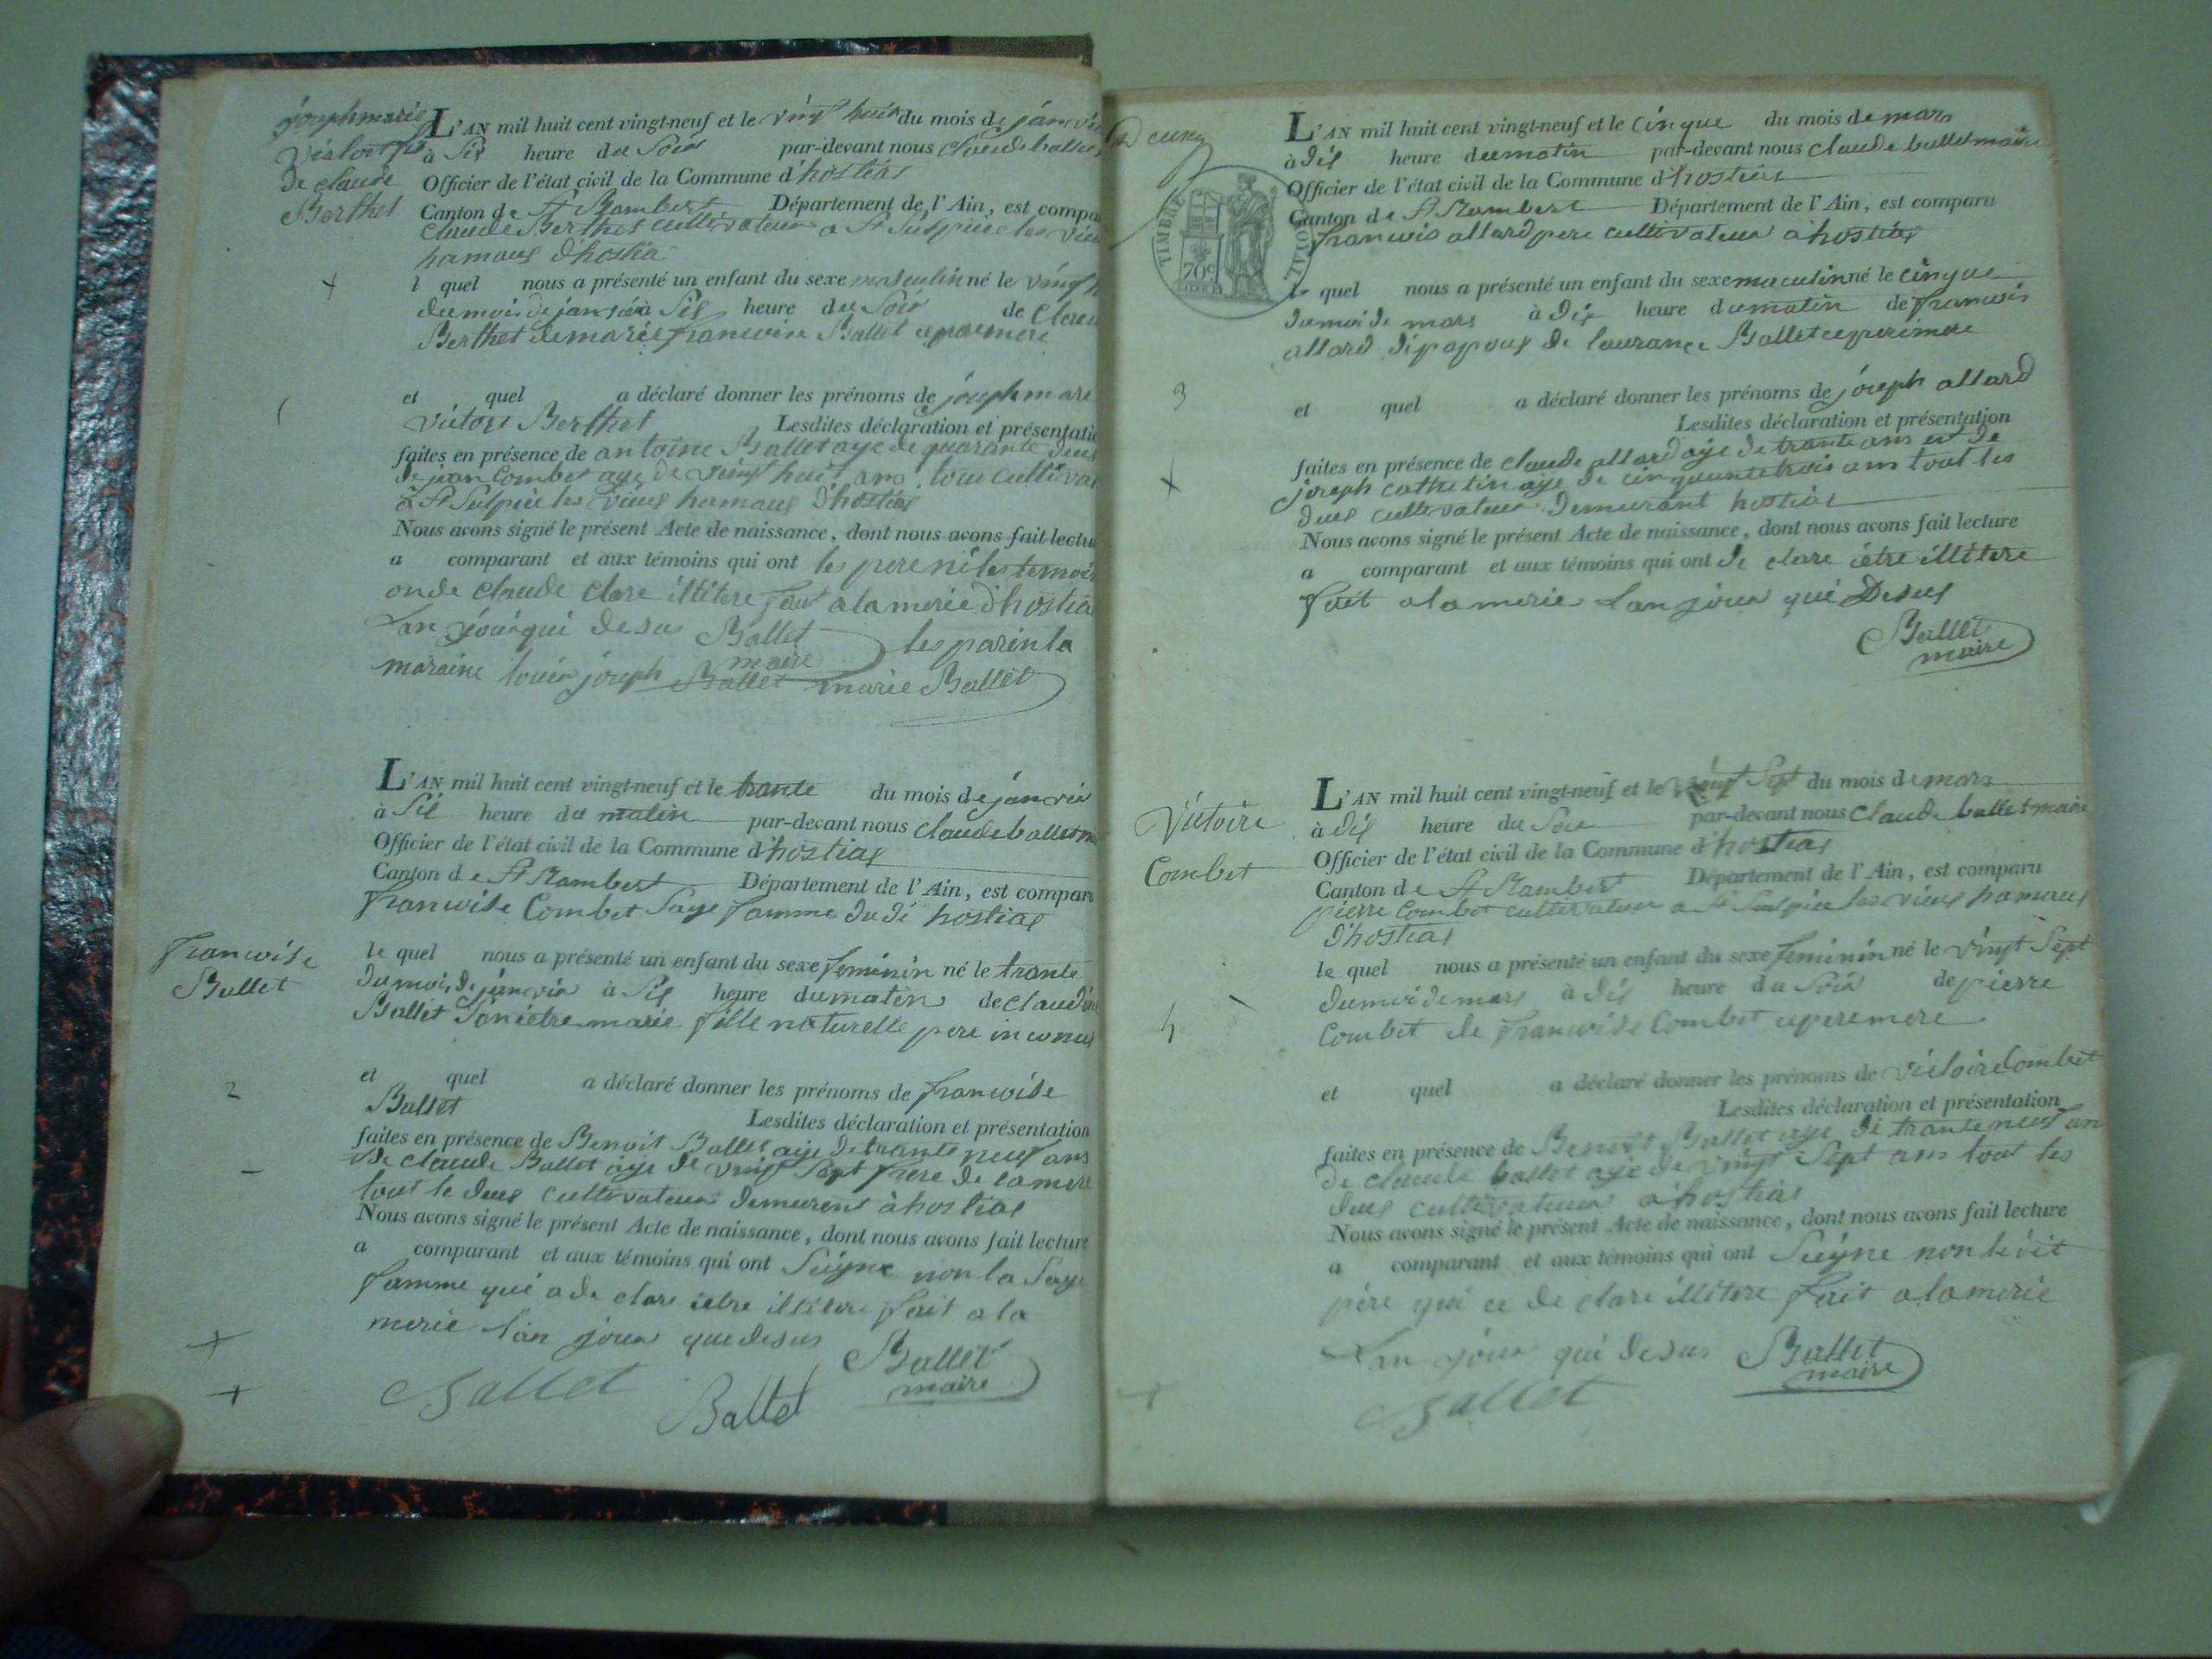 joseph marie
Victoire fils
de claude
Berthet
L'AN mil huit cent vingt-neuf et le vingt huit du mois de janvie
à Six heure du Soir par-devant nous claude ballet
Officier de l'état civil de la Commune d'hostias
Canton de St Rambert Département de l'Ain, est compa
Claude Berthet cultivateur a St Sulpice les vieu
hamaus d'hostia
l quel nous a présenté un enfant du sexe masculin né le vingt h
du mois de janvié à Sis heure du Soir de Clau
Berthet de marie francoise Ballet ce pere mere
1
et quel a déclaré donner les prénoms de joseph marie
Victore Berthet Lesdites déclaration et présentatio
faites en présence de antoine Ballet aye de quarante deus
de jean Combet aye de vingt huit ans tous cultivat
a St Sulpice les vieus hamaus d'hostias
Nous avons signé le présent Acte de naissance, dont nous avons fait lectu
a comparant et aux témoins qui ont les pere ni les temoin
on de claude clare illitere fait a la merie d'hostia
Lan jour qui desus Ballet les parin la
maire
maraine louis joseph Ballet marie Ballet
L'AN mil huit cent vingt-neuf et le trante du mois de janvié
à Sis heure du matin par-devant nous claude ballet m
Officier de l'état civil de la Commune d'hostias
Canton de St Rambert Département de l'Ain, est compar
francoise Combet Saye famme du di hostias
francoise
Ballet
le quel nous a présenté un enfant du sexe feminin né le trante
du mois de janvié à Sis heure du matin de claudine
Ballet San etre marié fille naturelle pere inconus
2
et quel a déclaré donner les prénoms de francoise
Ballet Lesdites déclaration et présentation
faites en présence de Benoit Ballet aye de trante neuf ans
de claude Ballet aye de vingt Sept frere de la mere
tout le deus cultivateur demeurent à hostias
Nous avons signé le présent Acte de naissance, dont nous avons fait lecture
a comparant et aux témoins qui ont Seigne non la Saye
famme qui a de clare etre illitere fait a la
merie lan jour que desus
Ballet
maire
Ballet Ballet
TIMBRE ROYAL
70c
L'AN mil huit cent vingt-neuf et le cinque du mois de mars
à dis heure du matin par-devant nous claude ballet maire
Officier de l'état civil de la Commune d'hostias
Canton de St Rambert Département de l'Ain, est comparu
francois allard pere cultivateur à hostias
le quel nous a présenté un enfant du sexe maculin né le cinque
du moi de mars à dis heure du matin de francois
allard de laurance Ballet ce pere mere
3
et quel a déclaré donner les prénoms de joseph allard
Lesdites déclaration et présentation
faites en présence de claude allard aye de trante ans est de
joseph cathelin aye de cinquante trois ans tout les
deus cultivateur demeurant hostias
Nous avons signé le présent Acte de naissance, dont nous avons fait lecture
a comparant et aux témoins qui ont de clare etre illitere
fait a la merie Lan jour qui Desus
Ballet
maire
Victoire
Combet
L'AN mil huit cent vingt-neuf et le vingt Sept du mois de mars
à dis heure du Soir par-devant nous Claude ballet maire
Officier de l'état civil de la Commune d'hostias
Canton de St Rambert Département de l'Ain, est comparu
pierre Combet cultivateur a St Sulpice les vieus hamaus
d'hostias
le quel nous a présenté un enfant du sexe feminin né le vingt Sept
du moi de mars à dis heure du Soir de pierre
Combet de francoise Combet ce pere mere
4
et quel a déclaré donner les prénoms de victoire Combet
Lesdites déclaration et présentation
faites en présence de Benoit Ballet aye de trante neuf an
de claude ballet aye de vingt Sept ans tout les
deus cultivateur à hostias
Nous avons signé le présent Acte de naissance, dont nous avons fait lecture
a comparant et aux témoins qui ont Seigne non le dit
père qui ce de clare illitere fait a la merie
Lan jour qui desus Ballet
maire
Ballet